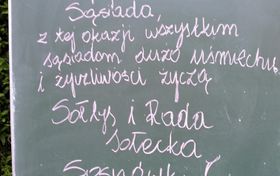 Sąsiada,
z tej okazji wszystkim
sąsiadom dużo uśmiechu
i życzliwości życzą
Sołtys i Rada
sołecka